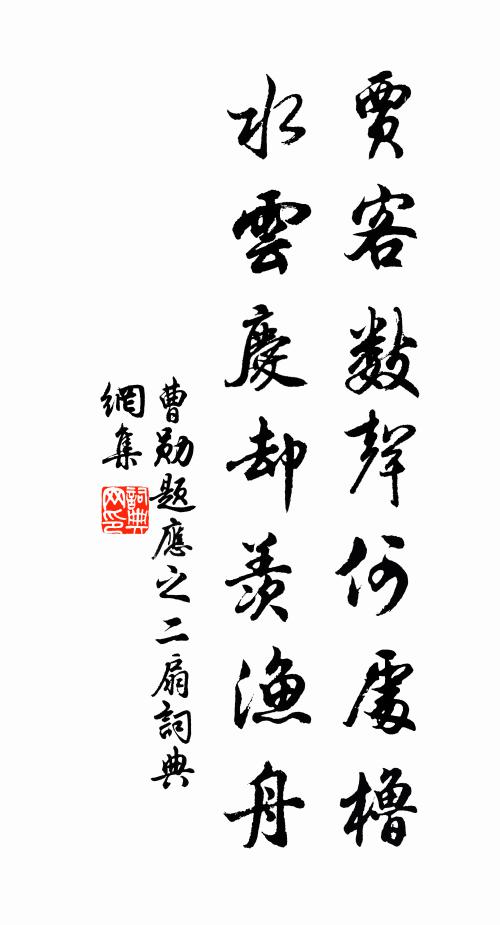 賈客數聲何處櫓
水雲慶却羨漁舟
曹勛題應之二扇詞典
網集
詞典網印